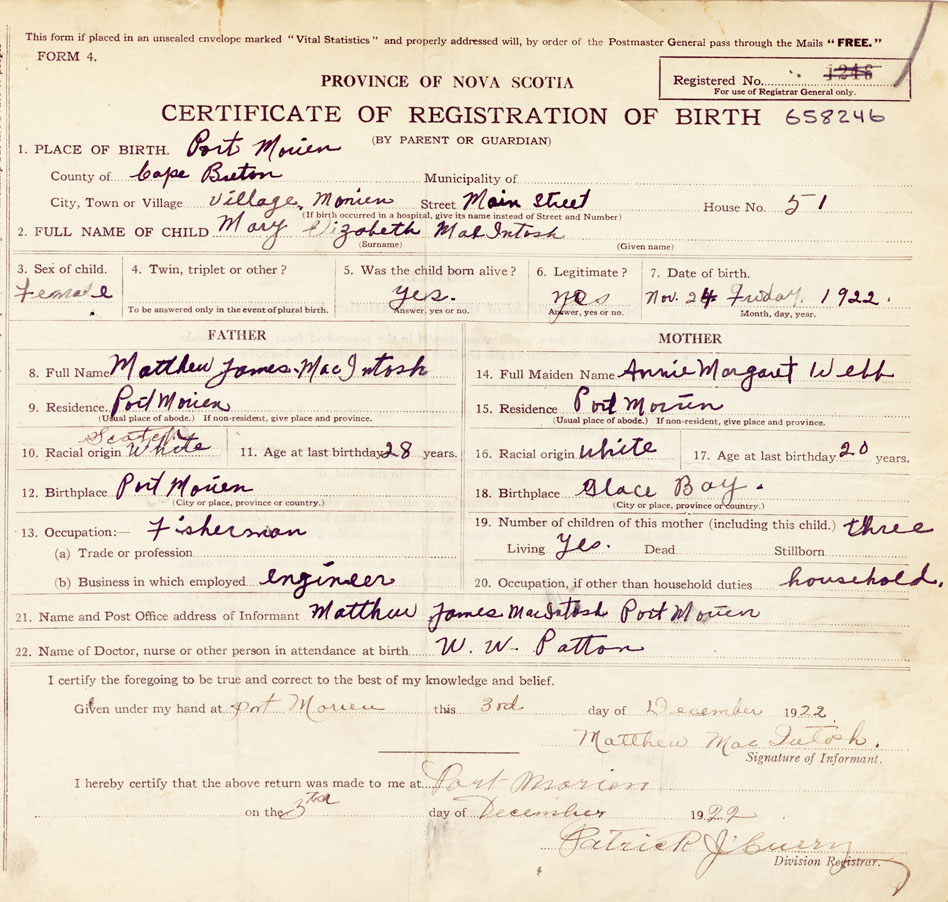 This form if placed in an unsealed envelope marked "Vital Statistics" and properly addressed will, by order of the Postmaster General pass through the Mails "FREE."
FORM 4.
PROVINCE OF NOVA SCOTIA
Registered No. 1246
For use of Registrar General only.
CERTIFICATE OF REGISTRATION OF BIRTH 658246
(BY PARENT OR GUARDIAN)
1. PLACE OF BIRTH. Port Morien
County of Cape Breton Municipality of
City, Town or Village Village, Morien Street Main Street House No. 51
(If birth occurred in a hospital, give its name instead of Street and Number)
2. FULL NAME OF CHILD Mary Elizabeth MacIntosh
(Surname) (Given name)
3. Sex of child. 4. Twin, triplet or other? 5. Was the child born alive? 6. Legitimate? 7. Date of birth.
Female yes. yes Nov. 24 Friday, 1922.
To be answered only in the event of plural birth. Answer, yes or no. Answer, yes or no. Month, day, year.
FATHER MOTHER
8. Full Name Matthew James MacIntosh 14. Full Maiden Name Annie Margaret Webb
9. Residence. Port Morien 15. Residence Port Morien
(Usual place of abode.) If non-resident, give place and province. (Usual place of abode.) If non-resident, give place and province.
Scotch
10. Racial origin White 11. Age at last birthday 28 years. 16. Racial origin white 17. Age at last birthday 20 years.
12. Birthplace Port Morien 18. Birthplace Glace Bay.
(City or place, province or country.) (City or place, province or country.)
13. Occupation:— Fisherman 19. Number of children of this mother (including this child.) three
(a) Trade or profession Living Yes. Dead Stillborn
(b) Business in which employed engineer 20. Occupation, if other than household duties household.
21. Name and Post Office address of Informant Matthew James MacIntosh Port Morien
22. Name of Doctor, nurse or other person in attendance at birth W. W. Patton
I certify the foregoing to be true and correct to the best of my knowledge and belief.
Given under my hand at Port Morien this 3rd day of December 1922.
Matthew MacIntosh.
Signature of Informant.
I hereby certify that the above return was made to me at Port Morien
on the 3rd day of December 1922
Patrick J
Division Registrar.